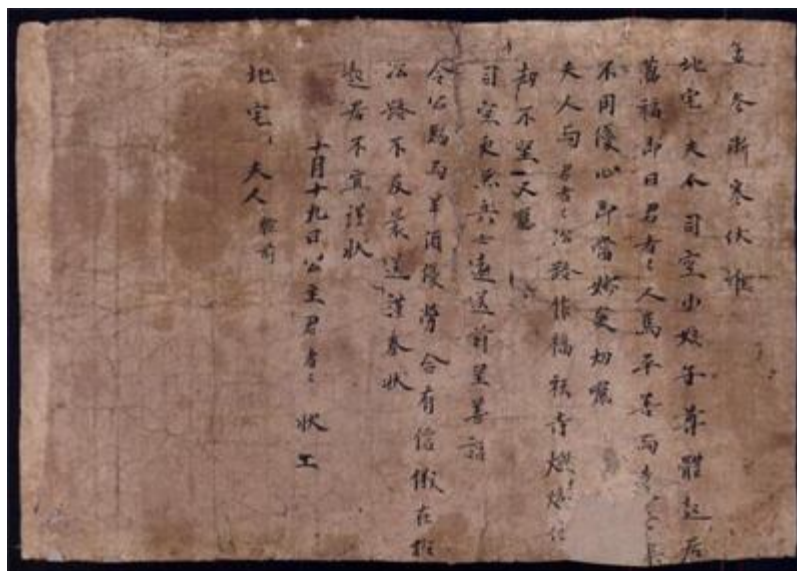 孟冬漸寒伏惟
北宅夫人司空小娘子尊體起居
萬福即日君者ゝ人馬平善
不用優心即當妙矣切囑
夫人与君者ゝ沿路作福祆寺燃燈
劫不望又囑
司空更兼兵士遠送前呈善諮
令公賜与羊酒優勞合有信儀在於
沿路不及晨送謹奉狀
起居不宣謹狀
十月十九日公主君者ゝ狀上
北宅夫人粧前